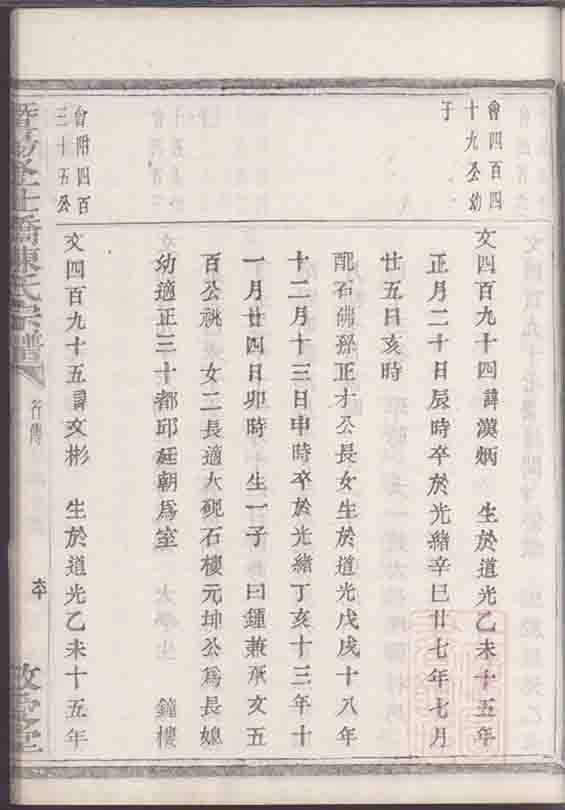 會四百四
十九公幼
子
文四百九十四諱漢炳 生於道光乙未十五年
正月二十日辰時卒於光緒辛巳廿七年七月
廿五日亥時
配石佛孫正才公長女生於道光戊戌十八年
十二月十三日申時卒於光緒丁亥十三年十
一月廿四日卯時 生一子曰鍾兼承文五
百公祧 女二長適大硯石樓元坤公爲長媳
幼適正三十都邱廷朝爲室 大學生 鐘樓
會附四百
三十五公
文四百九十五諱文彬 生於道光乙未十五年
陳氏宗譜
行傳